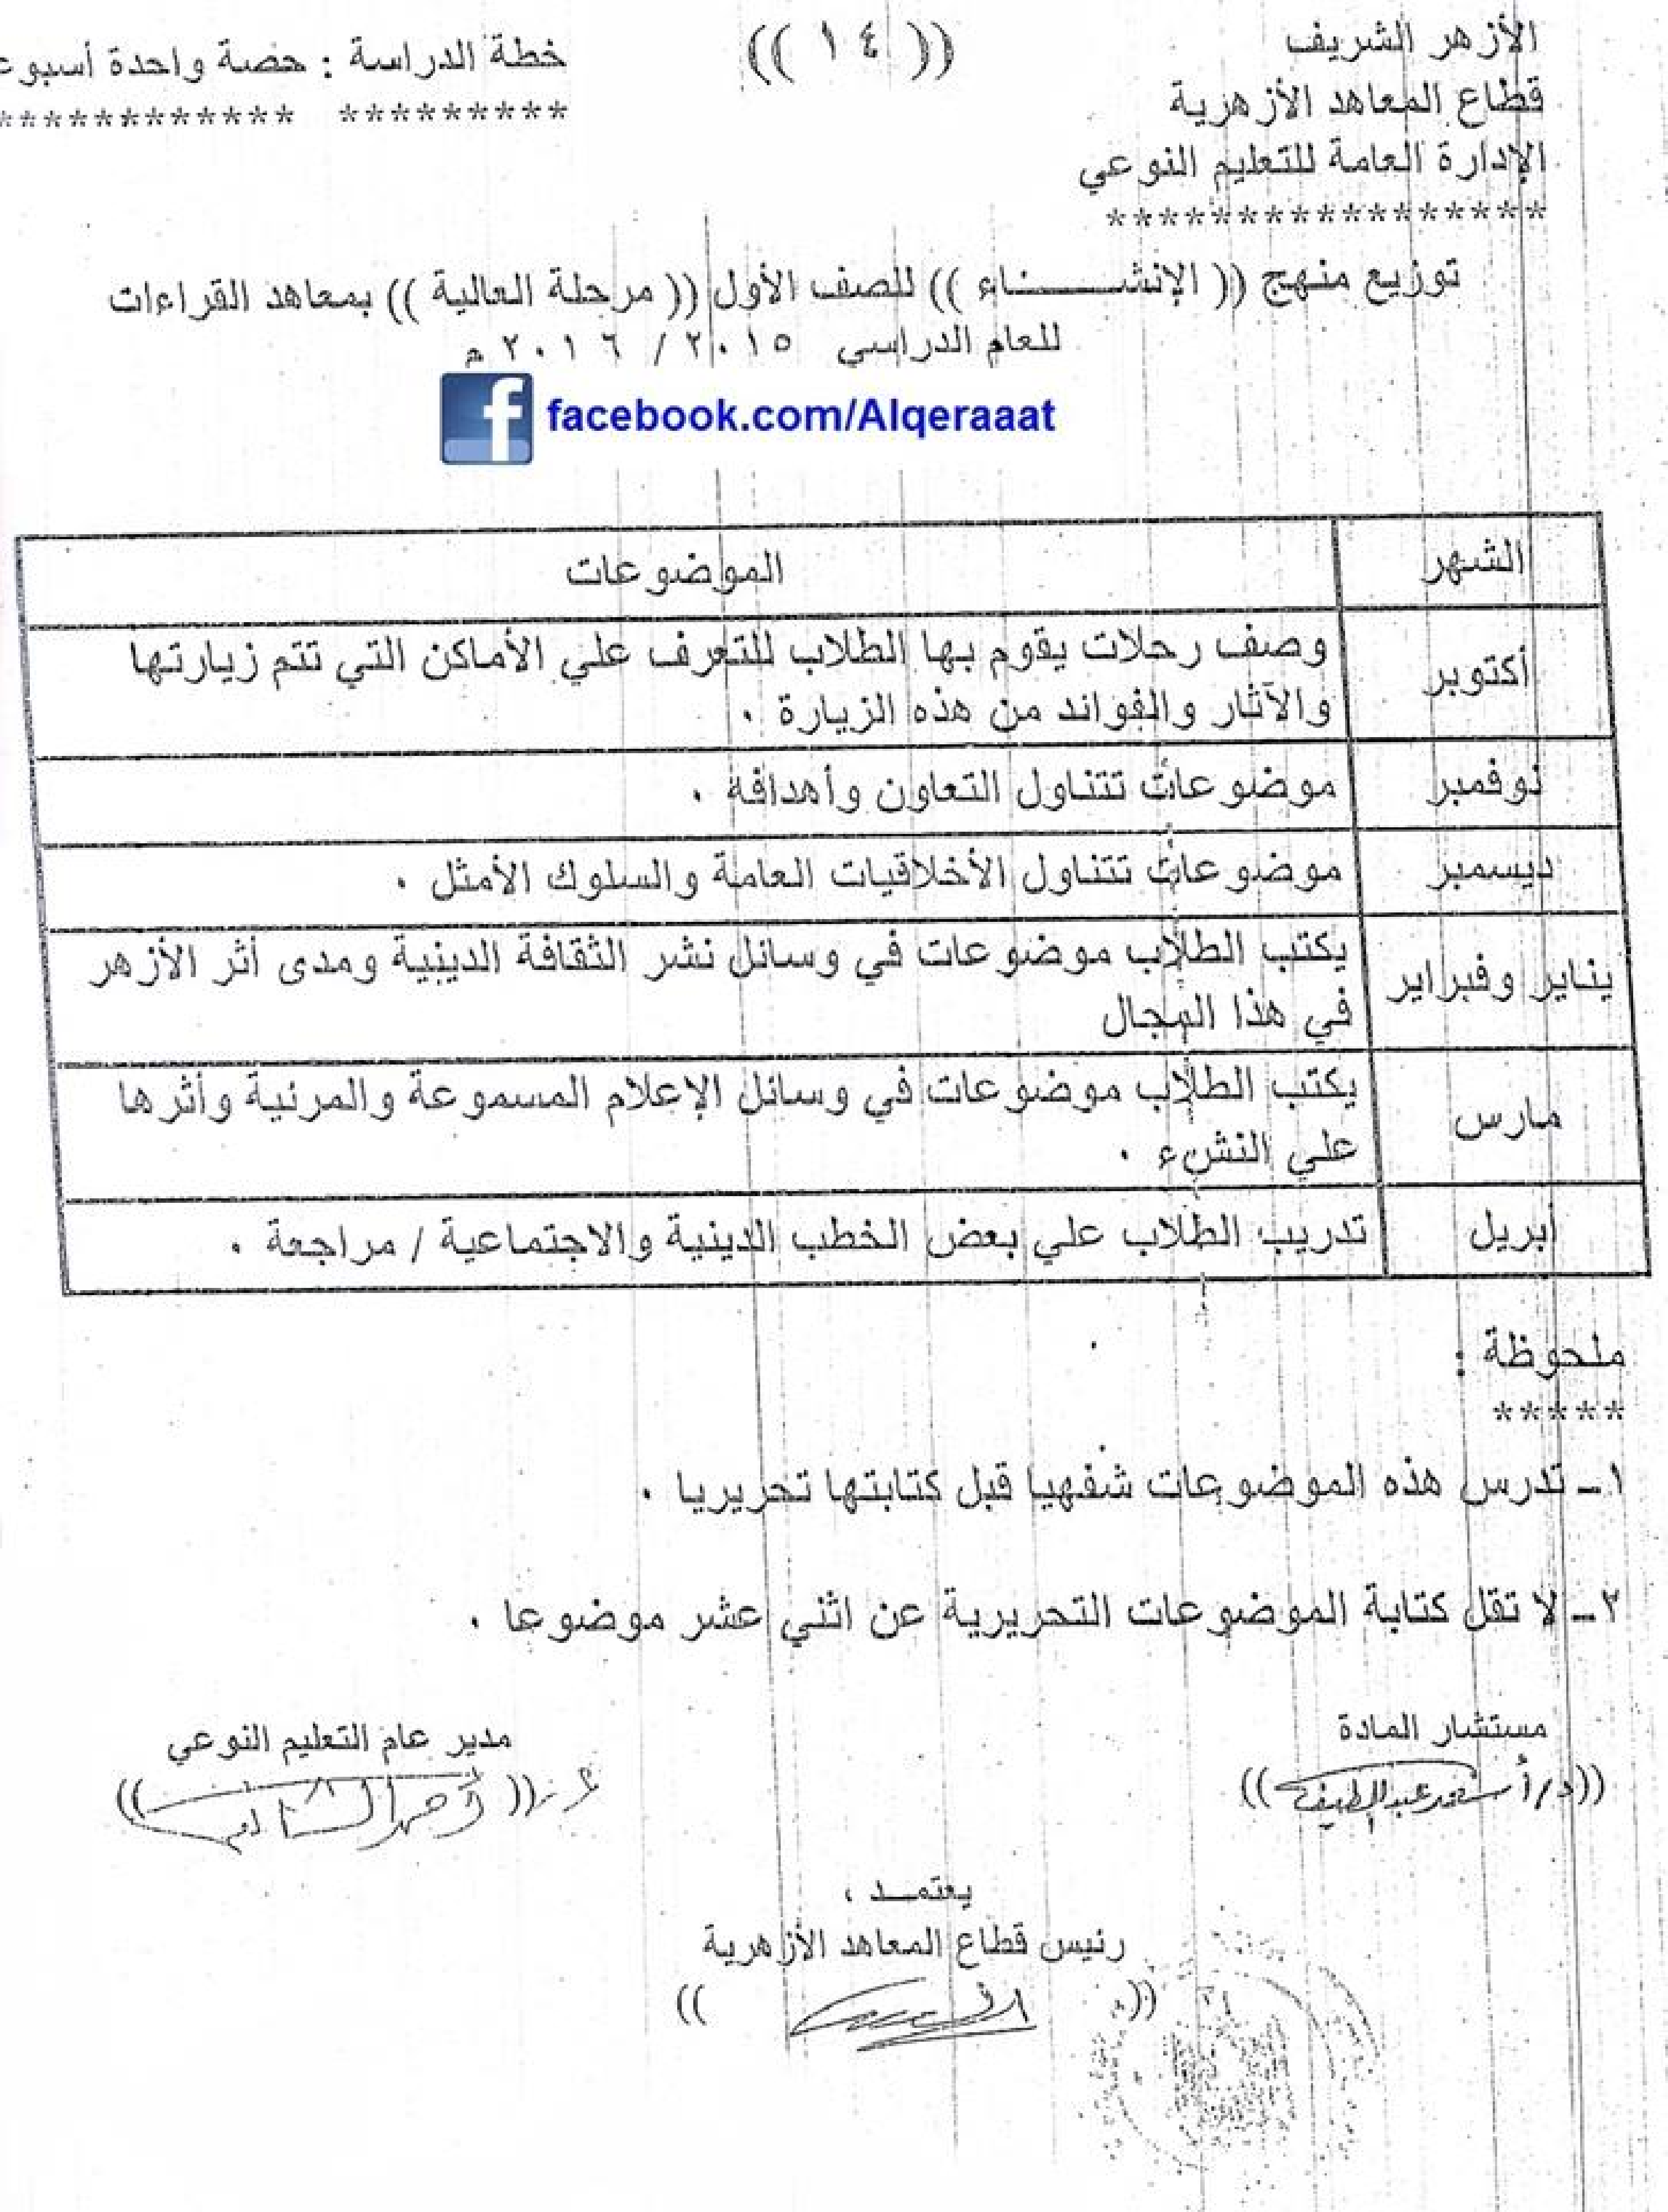 الأزهر الشريف
قطاع المعاهد الأزهرية
الإدارة العامة للتعليم النوعي
******************
(( ١٤ ))
خطة الدراسة : حصة واحدة أسبوع
********* ************
توزيع منهج (( الإنشـــــناء )) للصف الأول (( مرحلة العالية )) بمعاهد القراءات
للعام الدراسي ٢٠١٥ / ٢٠١٦ م
facebook.com/Alqeraaat
الشهر الموضوعات
أكتوبر وصف رحلات يقوم بها الطلاب للتعرف علي الأماكن التي تتم زيارتها
والآثار والفوائد من هذه الزيارة .
نوفمبر موضوعات تتناول التعاون وأهدافة .
ديسمبر موضوعات تتناول الأخلاقيات العامة والسلوك الأمثل .
يناير وفبراير يكتب الطلاب موضوعات في وسائل نشر الثقافة الدينية ومدى أثر الأزهر
في هذا المجال
مارس يكتب الطلاب موضوعات في وسائل الإعلام المسموعة والمرئية وأثرها
علي النشء .
ابريل تدريب الطلاب علي بعض الخطب الدينية والاجتماعية / مراجعة .
ملحوظة :
*****
١ - تدرس هذه الموضوعات شفهيا قبل كتابتها تحريريا .
٢ - لا تقل كتابة الموضوعات التحريرية عن اثني عشر موضوعا .
مستشار المادة
مدير عام التعليم النوعي
يعتمـد ،
رئيس قطاع المعاهد الأزهرية